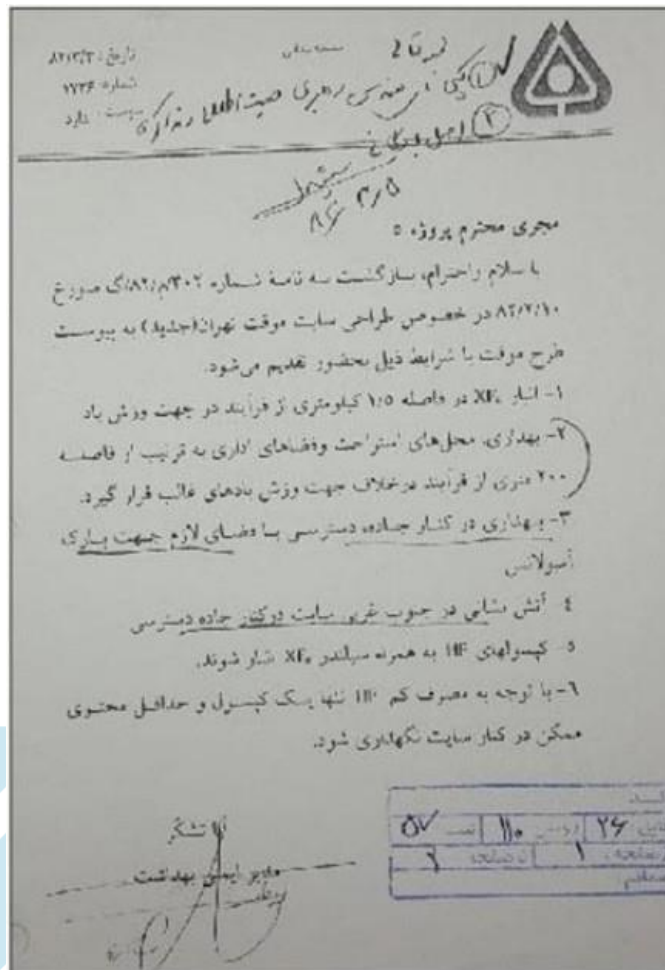 تاریخ: ۸۲/۳/۳
شماره: ۱۷۳۶
پیوست: دارد
مجری محترم پروژه ۵
با سلام و احترام، بازگشت به نامهٔ شماره ۳۰۲/م/۸۲/گ مورخ
۸۲/۲/۱۰ در خصوص طراحی سایت موقت تهران(جدید) به پیوست
طرح موقت با شرایط ذیل بحضور تقدیم می‌شود.
۱- انبار XF₆ در فاصله ۱/۵ کیلومتری از فرآیند در جهت وزش باد
۲- بهداری، محل‌های استراحت و فضاهای اداری به ترتیب از فاصله
۲۰۰ متری از فرآیند برخلاف جهت وزش بادهای غالب قرار گیرد.
۳- بهداری در کنار جاده دسترسی با فضای لازم جهت پارک
آمبولانس
٤- آتش نشانی در جنوب غربی سایت در کنار جاده دسترسی
۵- کپسولهای HF به همراه سیلندر XF₆ انبار شوند.
۶- با توجه به مصرف کم HF تنها یک کپسول و حداقل محتوی
ممکن در کنار سایت نگهداری شود.
با تشکر
مدیر ایمنی بهداشت
۲۶ ۱۱۰ ۵۷
صفحه ۱ صفحه ۲